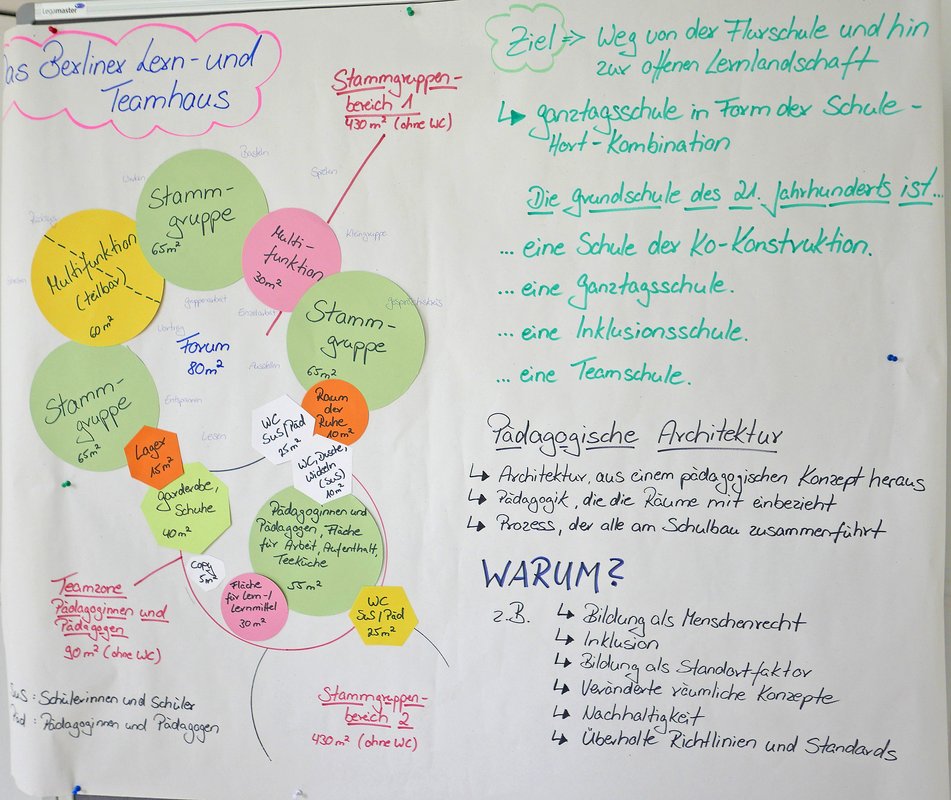 Legamaster
Das Berliner Lern- und
Teamhaus
Stammgruppen-
bereich 1
430 m² (ohne WC)
Basteln
Spielen
Stamm-
gruppe
65 m²
Multifunktion
(teilbar)
60 m²
Multi-
funktion
30 m²
Kleingruppe
Gruppenarbeit
Einzelarbeit
Gesprächskreis
Vortrag
Forum
80 m²
Ausstellen
Stamm-
gruppe
65 m²
Stamm-
gruppe
65 m²
Entspannen
Lesen
Raum
der
Ruhe
10 m²
WC
SuS/Päd
25 m²
WC, Dusche,
Wickeln
(SuS)
10 m²
Lager
15 m²
Garderobe,
Schuhe
40 m²
Pädagoginnen und
Pädagogen, Fläche
für Arbeit, Aufenthalt,
Teeküche
55 m²
Copy
5 m²
Fläche
für Lern-/
Lernmittel
30 m²
WC
SuS/Päd
25 m²
Teamzone
Pädagoginnen und
Pädagogen
90 m² (ohne WC)
Stammgruppen-
bereich 2
430 m² (ohne WC)
SuS: Schülerinnen und Schüler
Päd: Pädagoginnen und Pädagogen
Ziel => Weg von der Flurschule und hin
zur offenen Lernlandschaft
↳ Ganztagsschule in Form der Schule-
Hort-Kombination
Die Grundschule des 21. Jahrhunderts ist...
... eine Schule der Ko-Konstruktion.
... eine Ganztagsschule.
... eine Inklusionsschule.
... eine Teamschule.
Pädagogische Architektur
↳ Architektur, aus einem pädagogischen Konzept heraus
↳ Pädagogik, die die Räume mit einbezieht
↳ Prozess, der alle am Schulbau zusammenführt
WARUM?
z.B. ↳ Bildung als Menschenrecht
↳ Inklusion
↳ Bildung als Standortfaktor
↳ Veränderte räumliche Konzepte
↳ Nachhaltigkeit
↳ Überholte Richtlinien und Standards